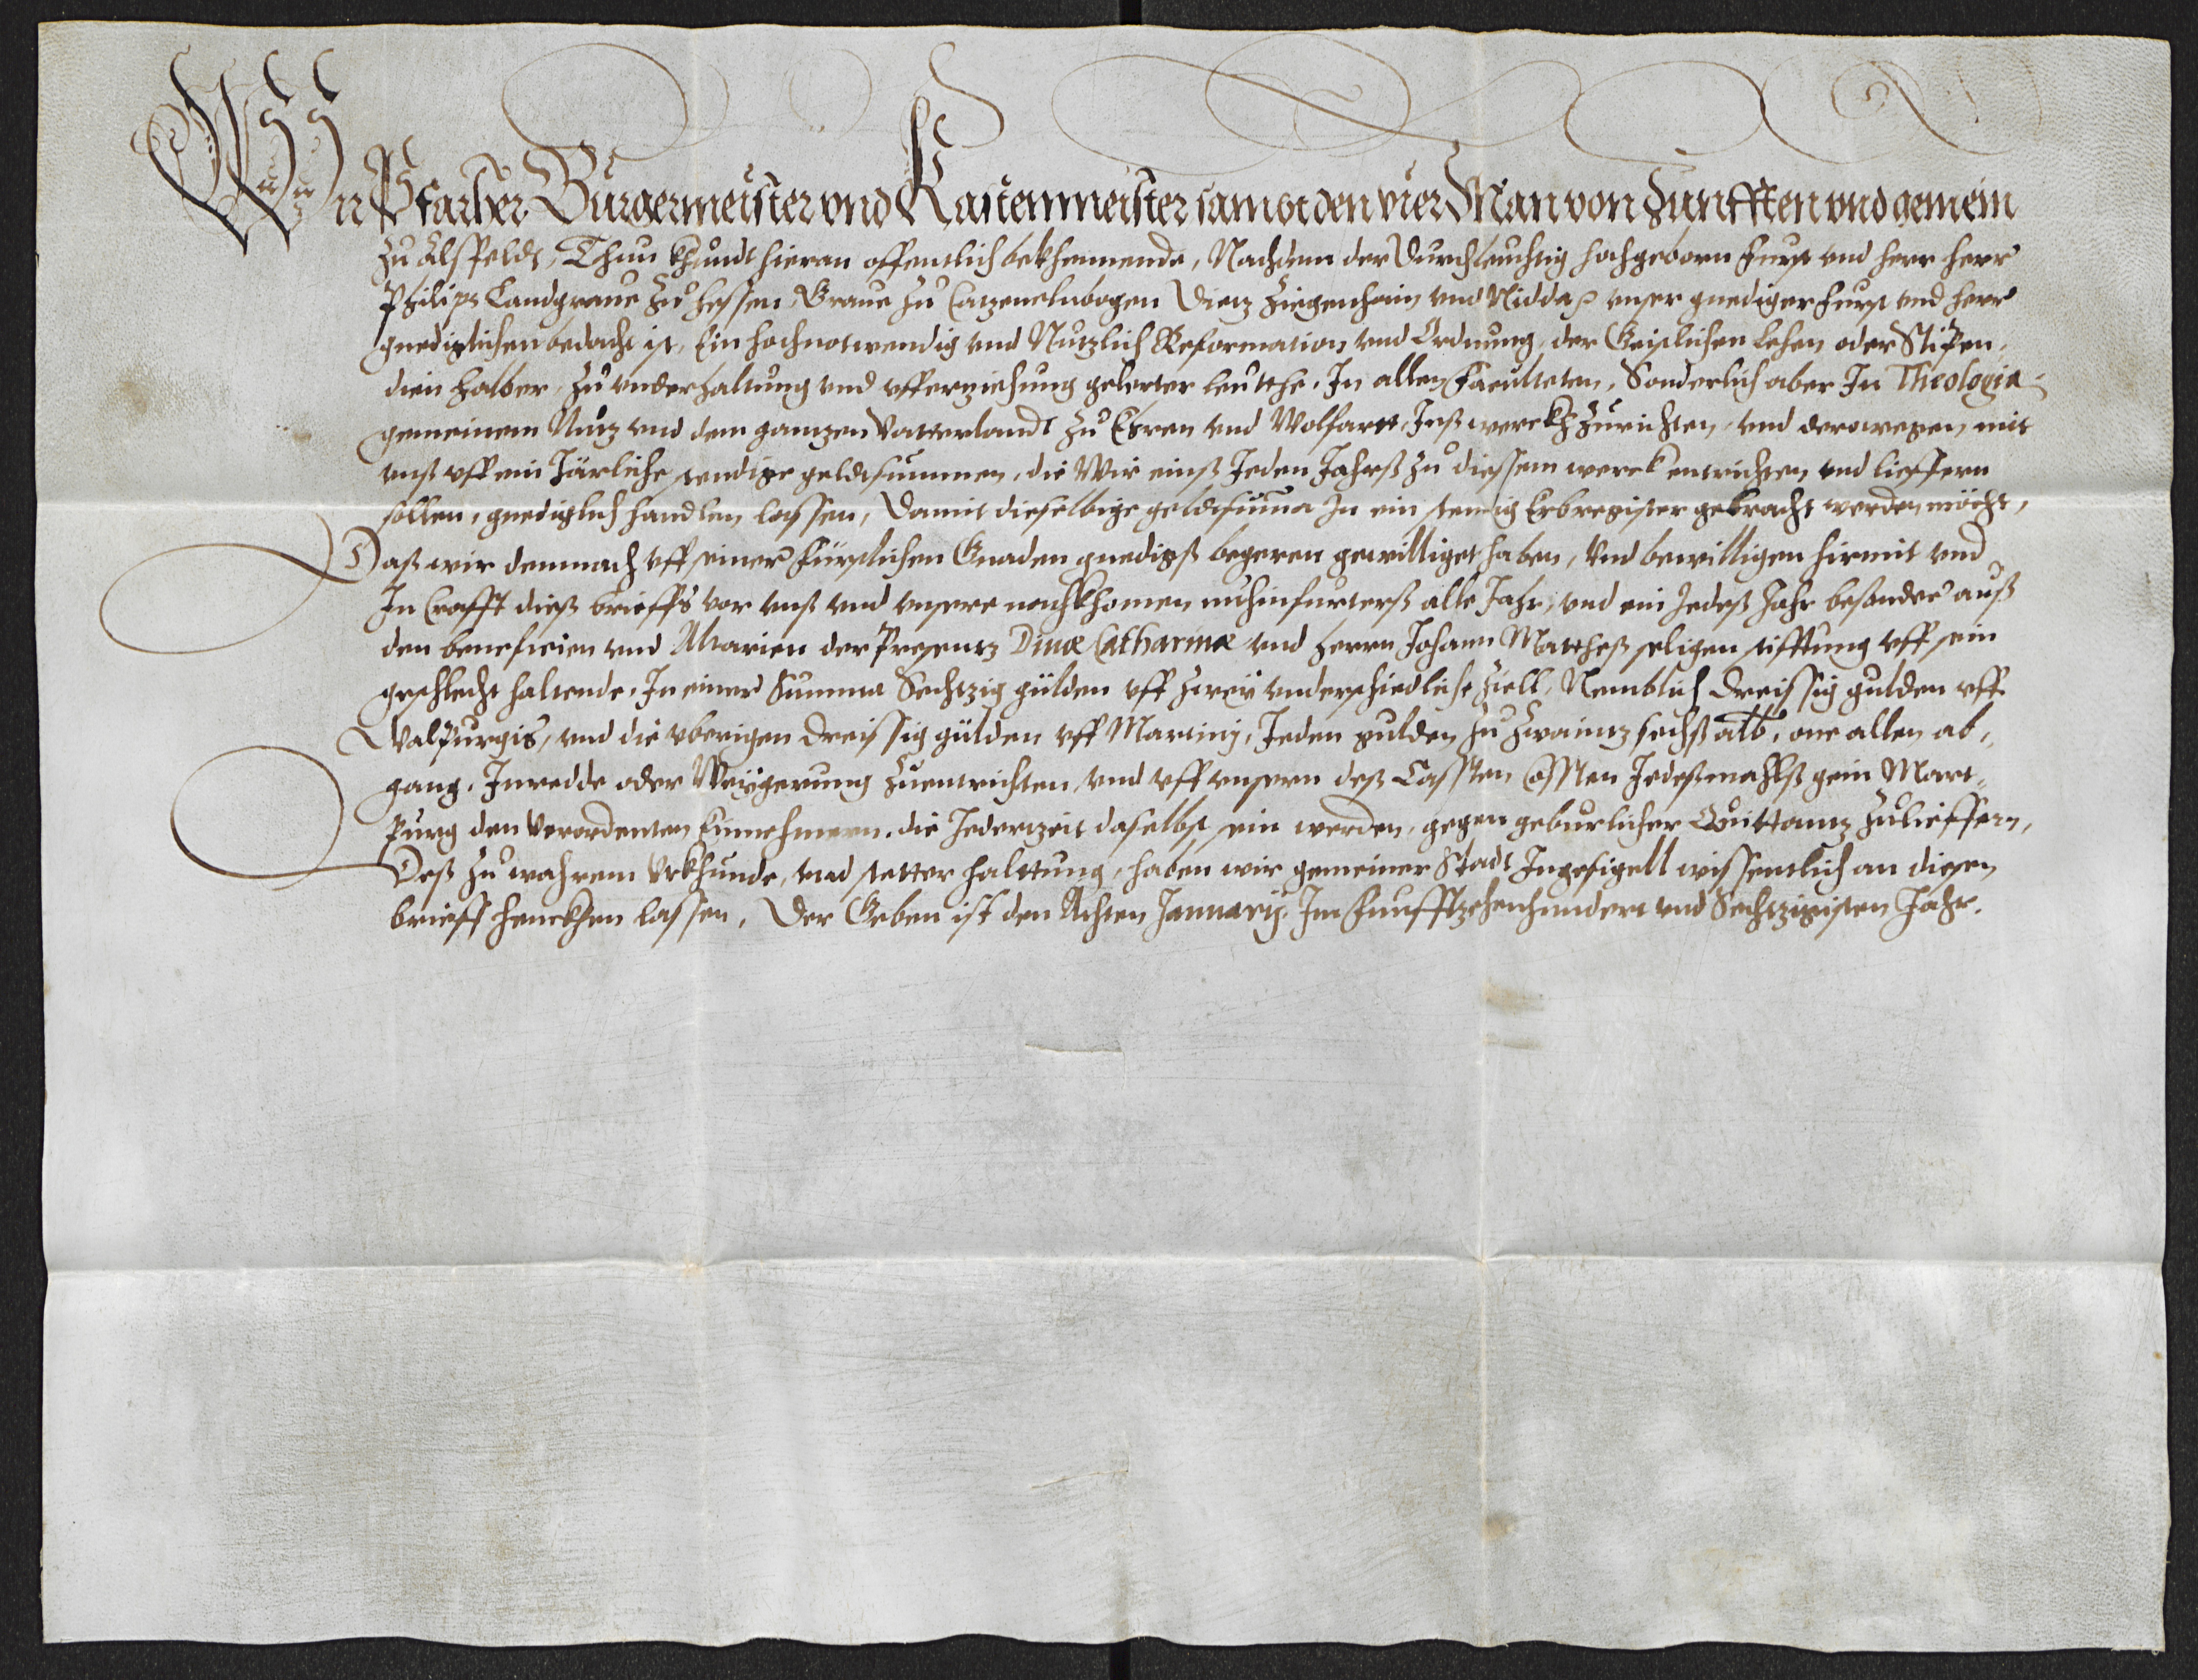 Wir Pfarher Burgermeister vnd Kastenmeister sambt den vier Man von Zunfften vnd gemein
zu Alsfeldt, Thun khundt hieran offentlich bekhennende, Nachdem der Durchleuchtig hochgeborn Furst vnd herr herr
Philips Landgraue zu Hessen, Graue zu Catzenelnbogen Dietz Ziegenhain vnd Nidda vnser gnediger Furst vnd herr
gnediglichen bedacht ist, Ein hochnotwendig vnd Nutzlich Reformation vnd Ordnung, der Geistlichen Lehen oder Stipen,
dien halber, zu vnderhaltung vnd vfferziehung gelerter Leutthe, In allen Faculteten, Sonderlich aber In Theologia
gemeinem Nutz vnd dem gantzen Vatterlandt zu Ehren vnd Wolfartt, Inß werckh zurichten, vnd derowegen mit
vnß vff ein Järliche stendige geldtsummen, die Wir einß Jeden Jahrß zu diessem werck entrichten vnd lieffern
sollen, gnediglich handlen lassen, Damit dieselbige geldtsumma In ein stendig Erbregister gebracht werden möcht,
Daß wir demnach vff seiner Fürstlichen Gnaden gnedigß begeren gewilliget haben, Vnd bewilligen hirmit vnd
In Crafft dieß brieffs vor vnß vnd vnsere nachkhomen nuhinfurterß alle Jahr, vnd ein Jedeß Jahr besonder auß
den beneficien vnd Altarien der Presentz Diuæ Catharinæ vnd Herrn Johann Mattheß seligen stifftung vff sein
geschlecht haltende, In einer Summa Sechtzig gülden vff zwey vnderschiedliche Ziell, Nemblich dreissig gulden vff
Walpurgis, vnd die vberigen dreissig gülden vff Martinj, Jeden gulden zu zwaintz sechß alb, one allen ab,
gang, Inredde oder Weygerung zuentrichten, vnd vff vnsern deß Cassten Cossten Jedeßmahlß gein Mart,
purg den Verordenten Einnehmern, die Jederzeit daselbst sein werden, gegen geburlicher Quittantz zulieffern,
Deß zu wahrem Vrkhunde, vnd stetter halttung, haben wir gemeiner Stadt Ingesigell wissentlich an diesen
brieff henckhen lassen, Der Geben ist den Achten Januarij, Im Funfftzehenhundert vnd Sechtzigisten Jahr.